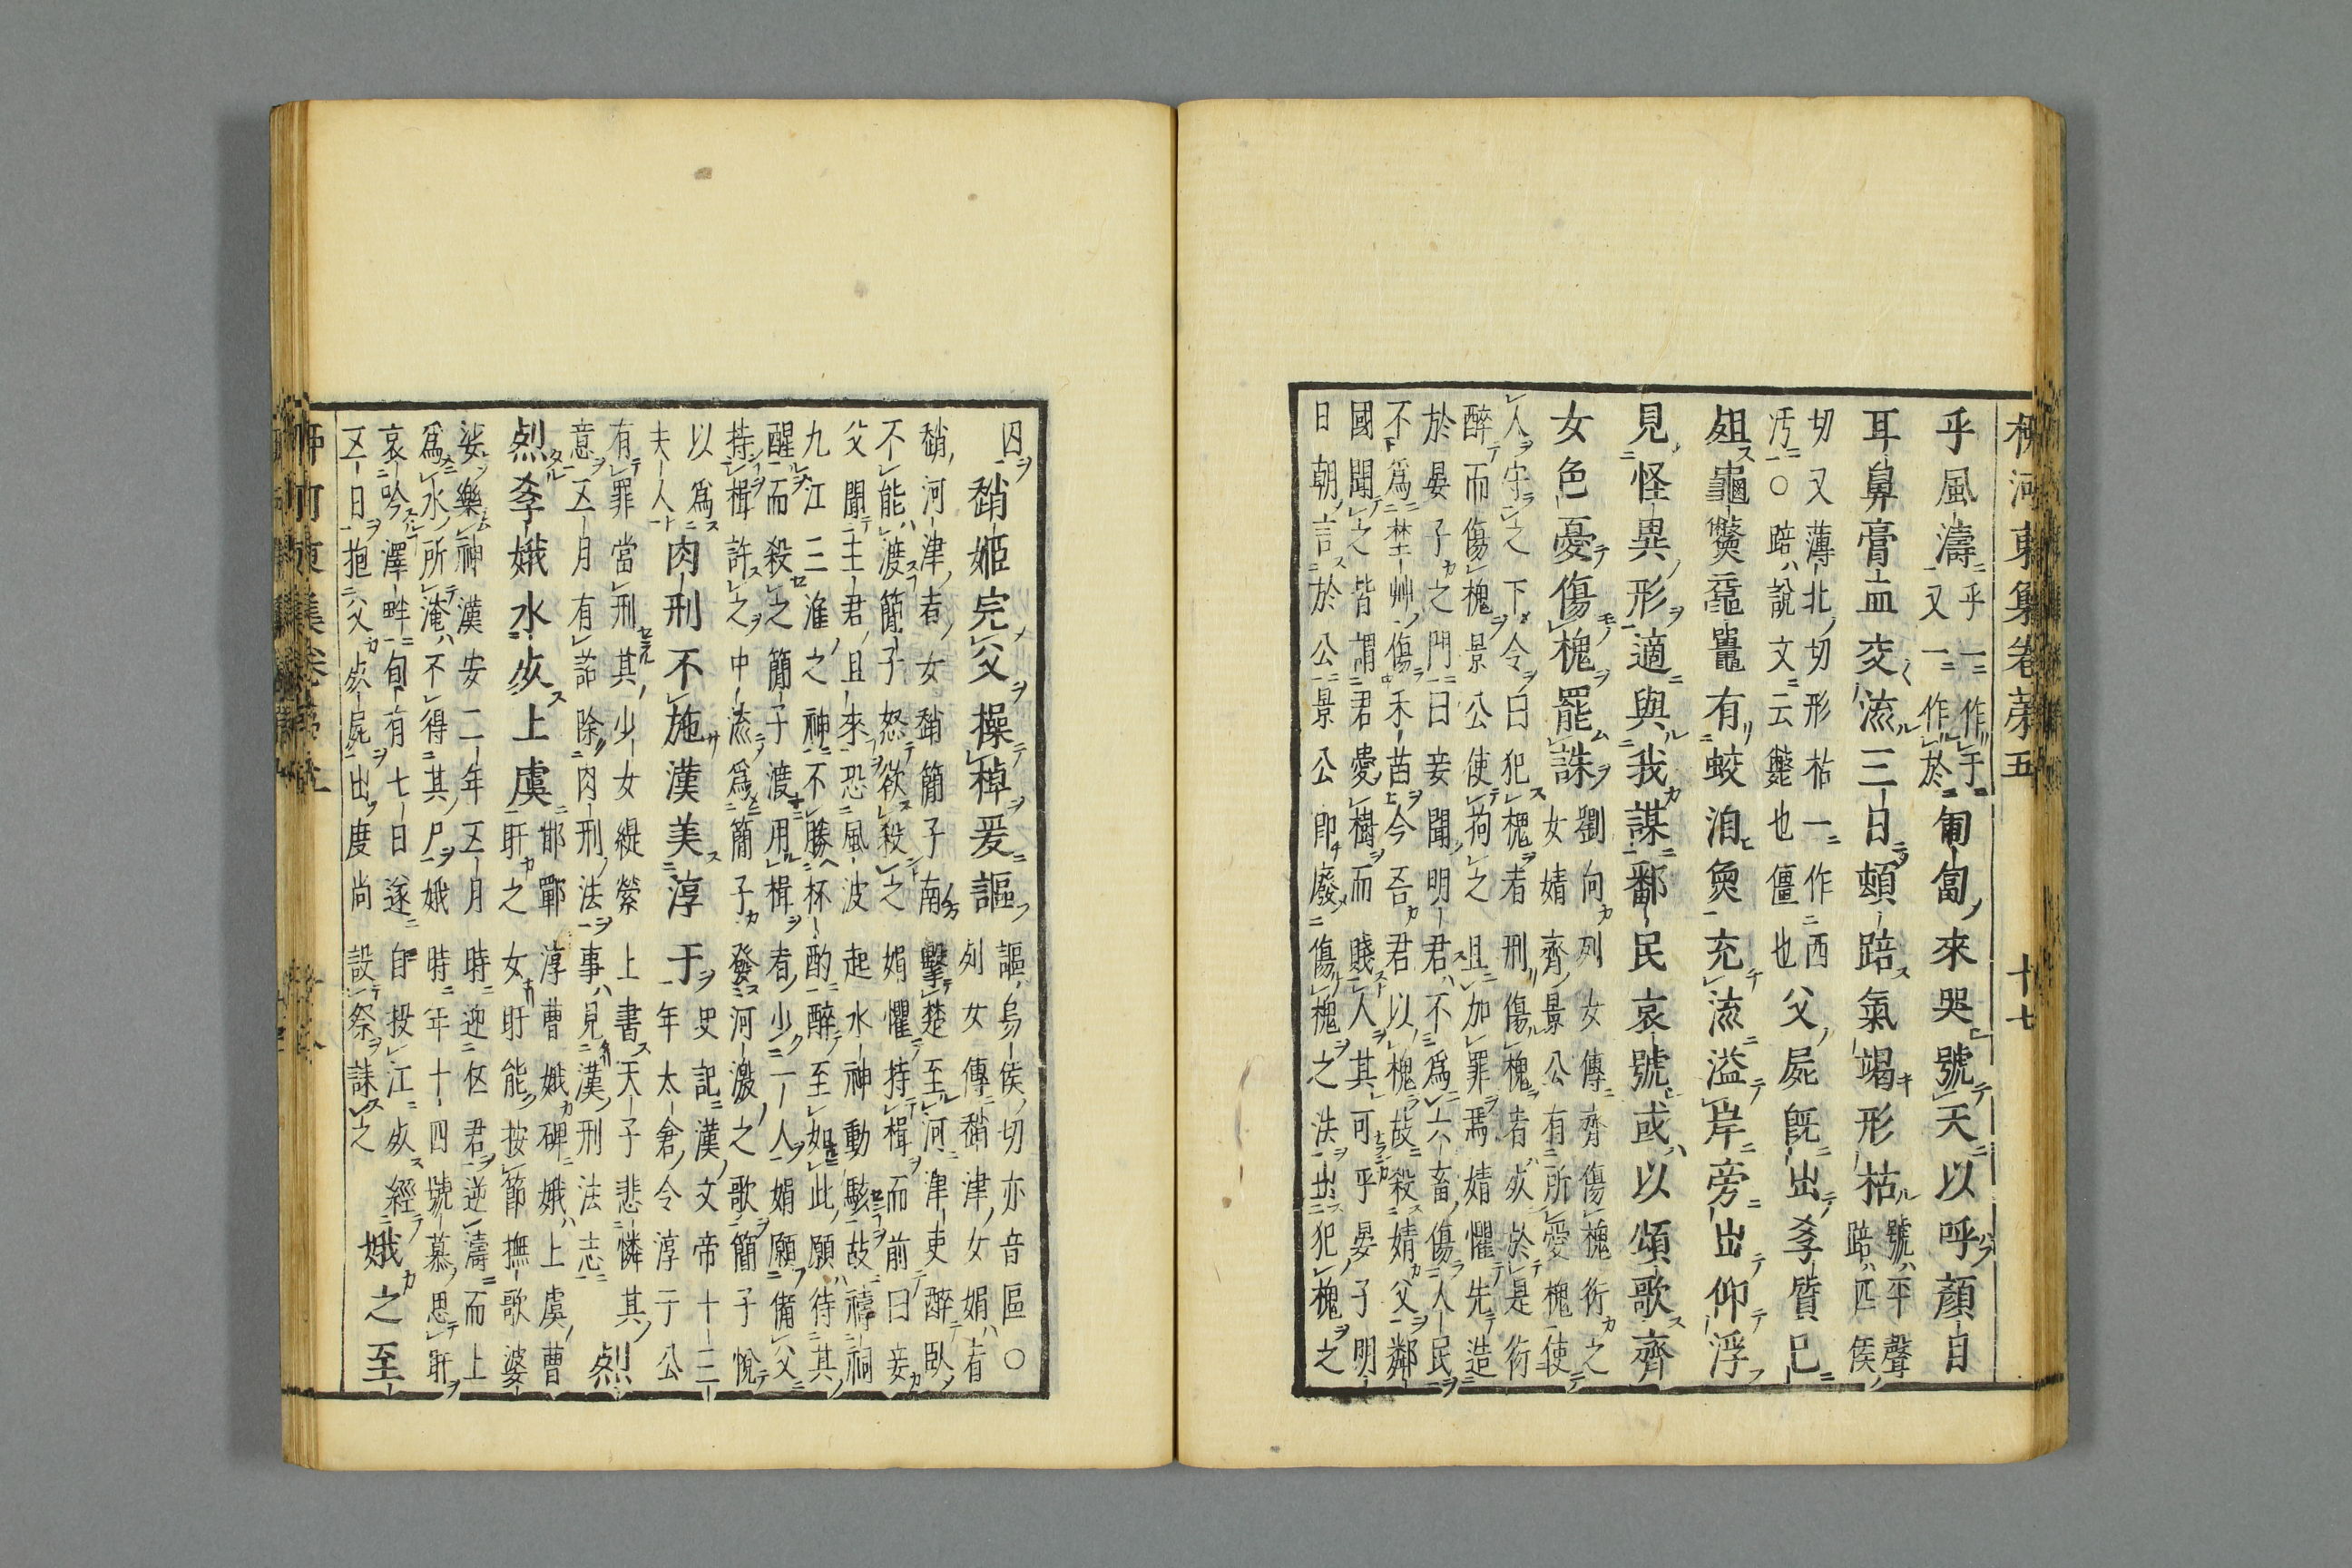 柳河東集卷第五 十七
乎風濤
乎一作于
又一作於
匍匐來哭號天以呼顏自
耳鼻膏血交流三日頓踣氣竭形枯
號平聲
踣匹侯
切又薄北切形枯一作西
汚○踣說文云斃也僵也
父屍旣出孝質已
殂龜鱉黿鼉有蛟洎魚充流溢岸旁出仰浮
見怪異形適與我謀鄱民哀號或以頌歌齊
女色憂傷槐罷誅
劉向列女傳齊傷槐衍之
女婧齊景公有所愛槐使
人守之下令曰犯槐者刑傷槐者死於是衍
醉而傷槐景公使拘之且加罪焉婧懼先造
於晏子之門曰妾聞明君不為六畜傷人民
不為埜艸傷禾苗今吾君以槐故殺婧父鄰
國聞之皆謂君愛樹而賤人其可乎晏子明
日朝言於公景公即廢傷槐之法出犯槐之
囚
趙姬完父操棹爰謳
謳烏侯切亦音區○
列女傳趙津女娟者
趙河津者女趙簡子南擊楚至河津津吏醉臥
不能渡簡子怒欲殺之娟懼持楫而前曰妾
父聞主君且來恐風波起水神動駭故禱祠
九江三淮之神不勝杯酌醉至如此願待其
醒而殺之簡子渡用楫者少一人娟願備父
持楫許之中流為簡子發河激之歌簡子悅
以為
夫人
肉刑不施漢美淳于
史記漢文帝十三
年太倉令淳于公
有罪當刑其少女緹縈上書天子悲憐其
意五月有詔除肉刑法事見漢刑法志
烈
烈孝娥水死上虞
邯鄲淳曹娥碑娥上虞曹
盱之女盱能按節撫歌婆
娑樂神漢安二年五月時迎伍君逆濤而上
為水所淹不得其尸娥時年十四號慕思盱
哀吟澤畔旬有七日遂自投江死經
五日抱父死屍出度尚設祭誄之
娥之至